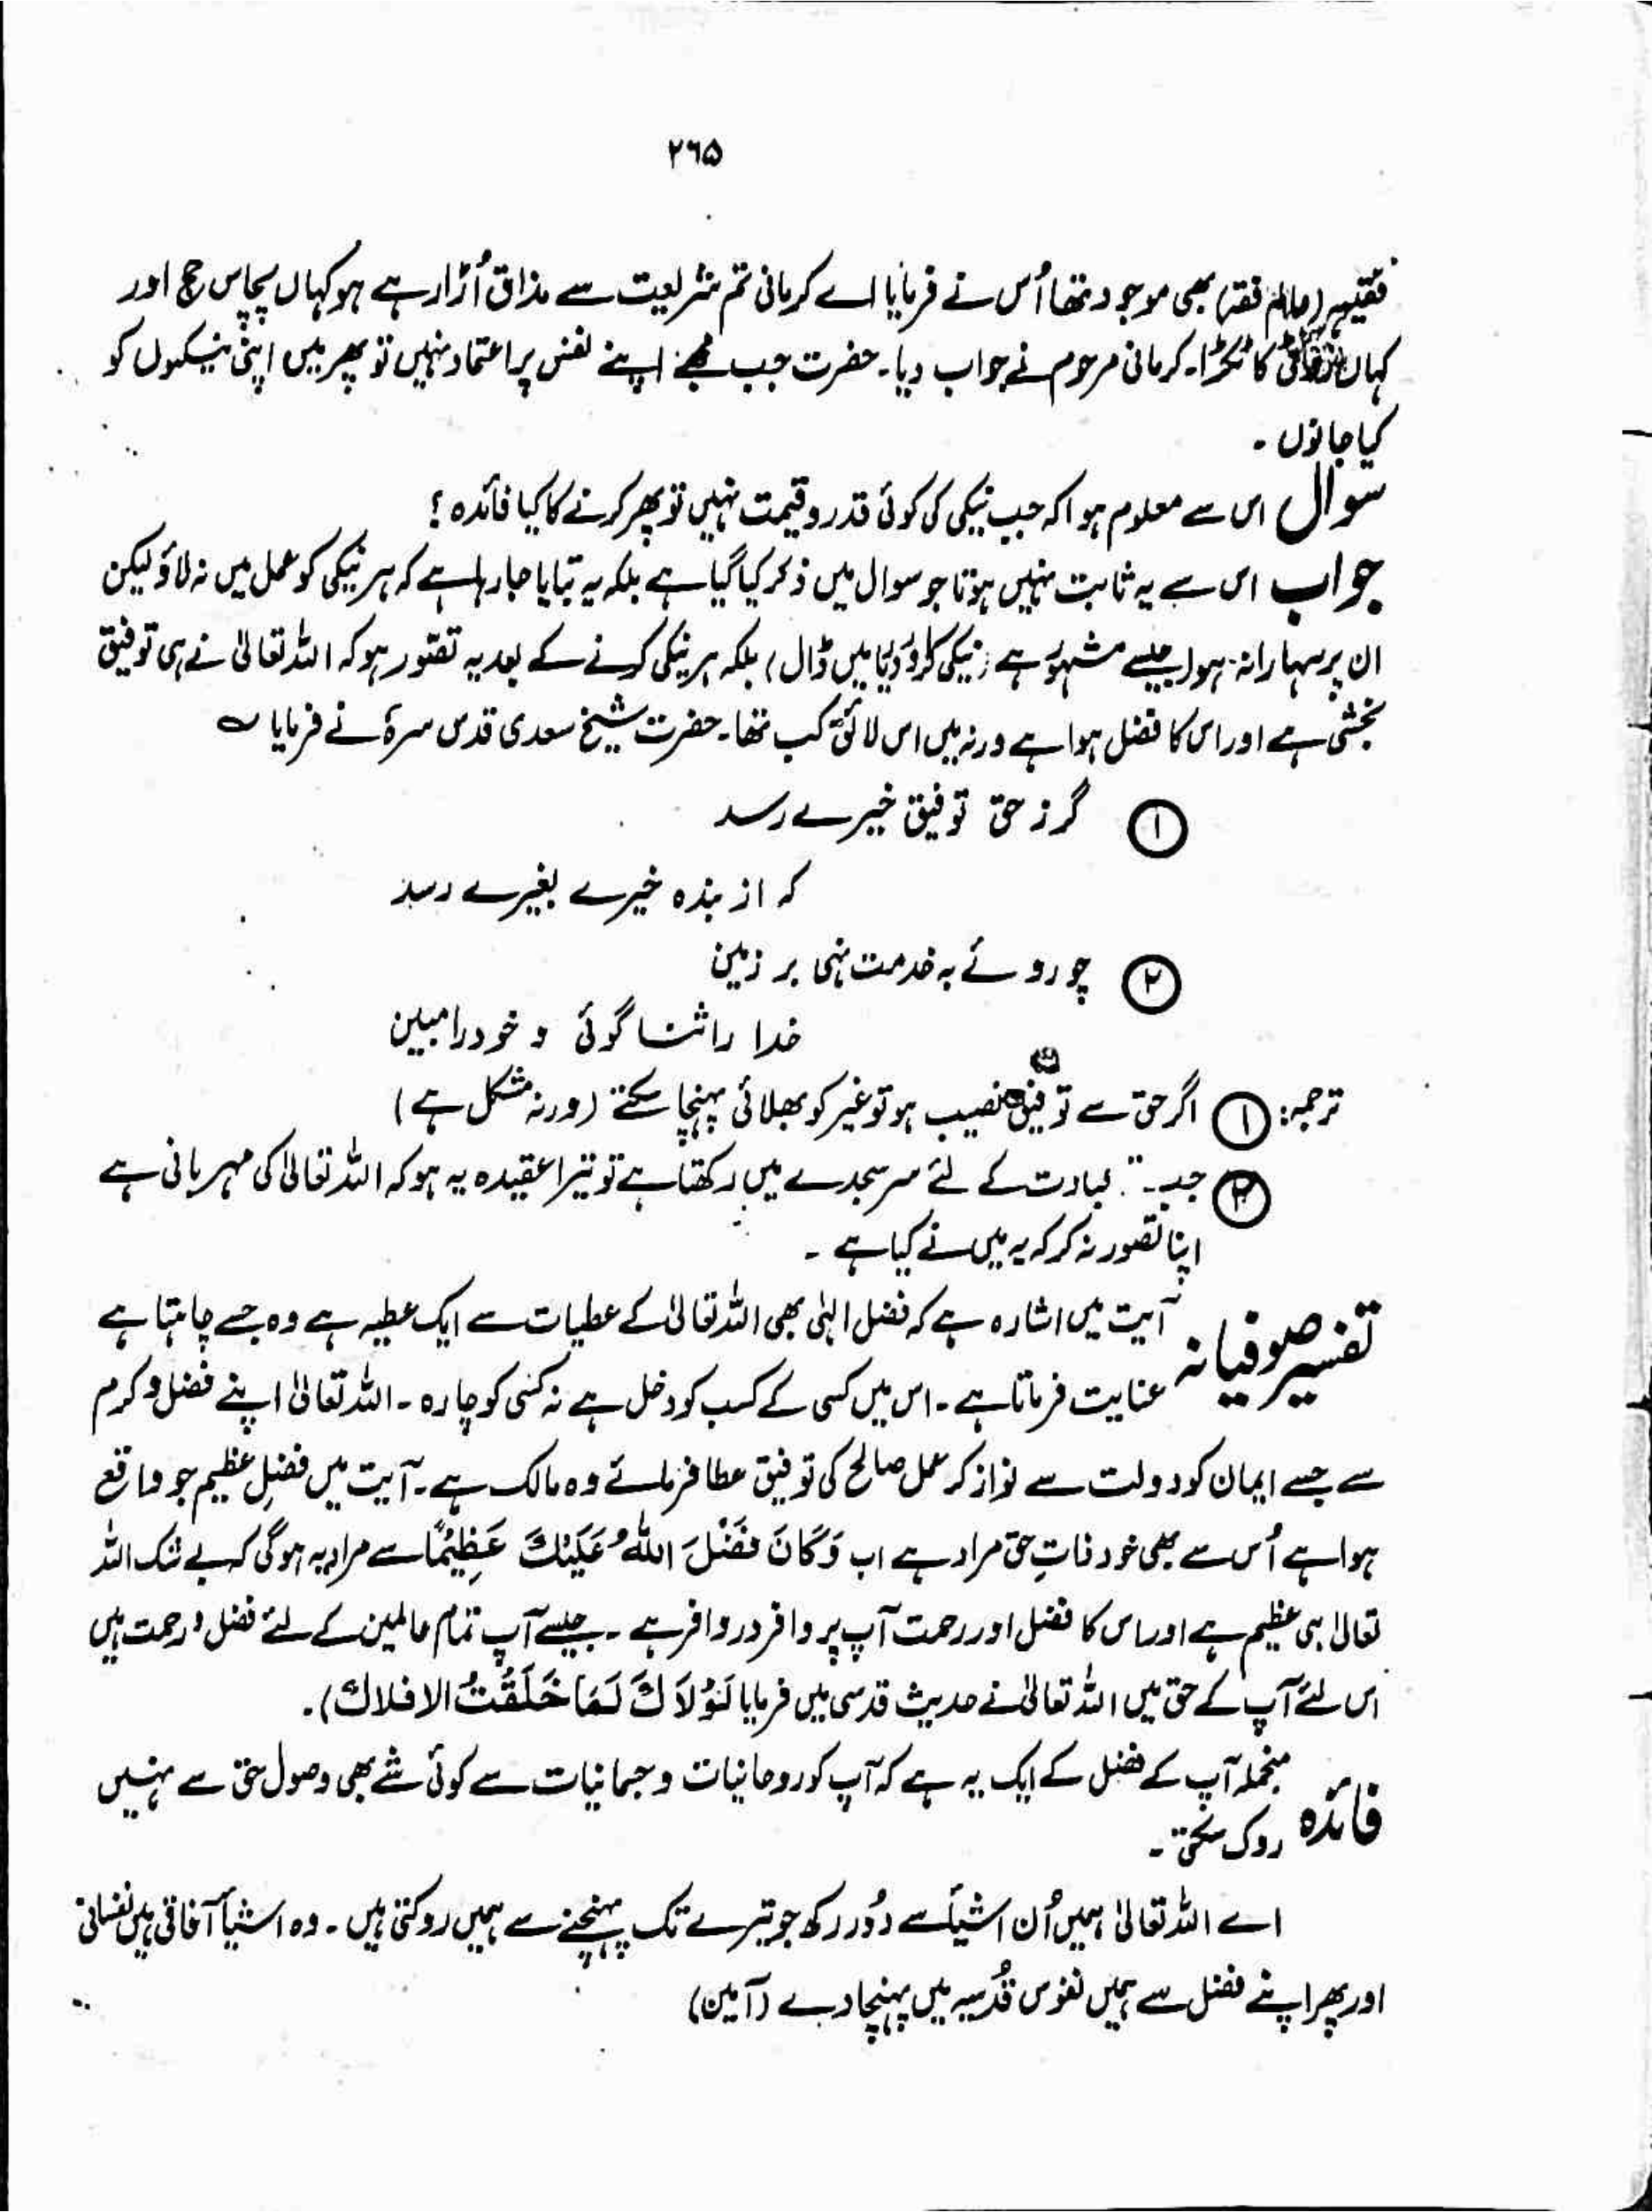 ۲۶۵
فقیہہ (عالم فقہ) بھی موجود تھا اُس نے فرمایا اے کرمانی تم شریعت سے مذاق اُڑا رہے ہو کہاں پچاس حج اور
کہاں کا ٹکڑا۔ کرمانی مرحوم نے جواب دیا۔ حضرت جب مجھے اپنے نفس پر اعتماد نہیں تو پھر میں اپنی نیکیوں کو
کیا جانوں ۔
سوال اس سے معلوم ہوا کہ جب نیکی کی کوئی قدر و قیمت نہیں تو پھر کرنے کا کیا فائدہ ؟
جواب اس سے یہ ثابت نہیں ہوتا جو سوال میں ذکر کیا گیا ہے بلکہ یہ بتایا جا رہا ہے کہ ہر نیکی کو عمل میں نہ لاؤ لیکن
ان پر سہارا نہ ہو (جیسے مشہور ہے (نیکی کر اور دریا میں ڈال) بلکہ ہر نیکی کرنے کے بعد یہ تصور ہو کہ اللہ تعالیٰ نے ہی توفیق
بخشی ہے اور اس کا فضل ہوا ہے ورنہ میں اس لائق کب تھا۔ حضرت شیخ سعدی قدس سرہٗ نے فرمایا ؎
① گر ز حق توفیق خیرے رسد
کہ از بندہ خیرے بغیرے رسد
② چو روئے بہ خدمت نہی بر زمین
خدا را ثنا گوئی و خود را مبین
ترجمہ: ① اگر حق سے توفیق نصیب ہو تو غیر کو بھلائی پہنچا سکتے (ورنہ مشکل ہے)
② جب عبادت کے لئے سر سجدے میں رکھتا ہے تو تیرا عقیدہ یہ ہو کہ اللہ تعالیٰ کی مہربانی ہے
اپنا تصور نہ کر کہ یہ میں نے کیا ہے ۔
تفسیر صوفیانہ آیت میں اشارہ ہے کہ فضل الہٰی بھی اللہ تعالیٰ کے عطیات سے ایک عطیہ ہے وہ جسے چاہتا ہے
عنایت فرماتا ہے ۔ اس میں کسی کے کسب کو دخل ہے نہ کسی کو چارہ ۔ اللہ تعالیٰ اپنے فضل و کرم
سے جسے ایمان کو دولت سے نواز کر عمل صالح کی توفیق عطا فرمائے وہ مالک ہے ۔ آیت میں فضلِ عظیم جو واقع
ہوا ہے اُس سے بھی خود ذاتِ حق مراد ہے اب وَكَانَ فَضْلَ اللّٰهُ عَلَيْكَ عَظِيْمًا سے مراد یہ ہوگی کہ بے شک اللہ
تعالیٰ ہی عظیم ہے اور اس کا فضل اور رحمت آپ پر وافر در وافر ہے ۔ جیسے آپ تمام عالمین کے لئے فضل و رحمت ہیں
اس لئے آپ کے حق میں اللہ تعالیٰ نے حدیث قدسی میں فرمایا لَوْلَاكَ لَمَا خَلَقْتُ الافلاك) ۔
فائدہ منجملہ آپ کے فضل کے ایک یہ ہے کہ آپ کو روحانیات و جسمانیات سے کوئی شے بھی وصول حق سے نہیں
روک سکتی ۔
اے اللہ تعالیٰ ہمیں اُن اشیأ سے دُور رکھ جو تیرے تک پہنچنے سے ہمیں روکتی ہیں ۔ وہ اشیأ آفاقی ہیں نفسانی
اور پھر اپنے فضل سے ہمیں نفوس قُدسیہ میں پہنچا دے (آمین)